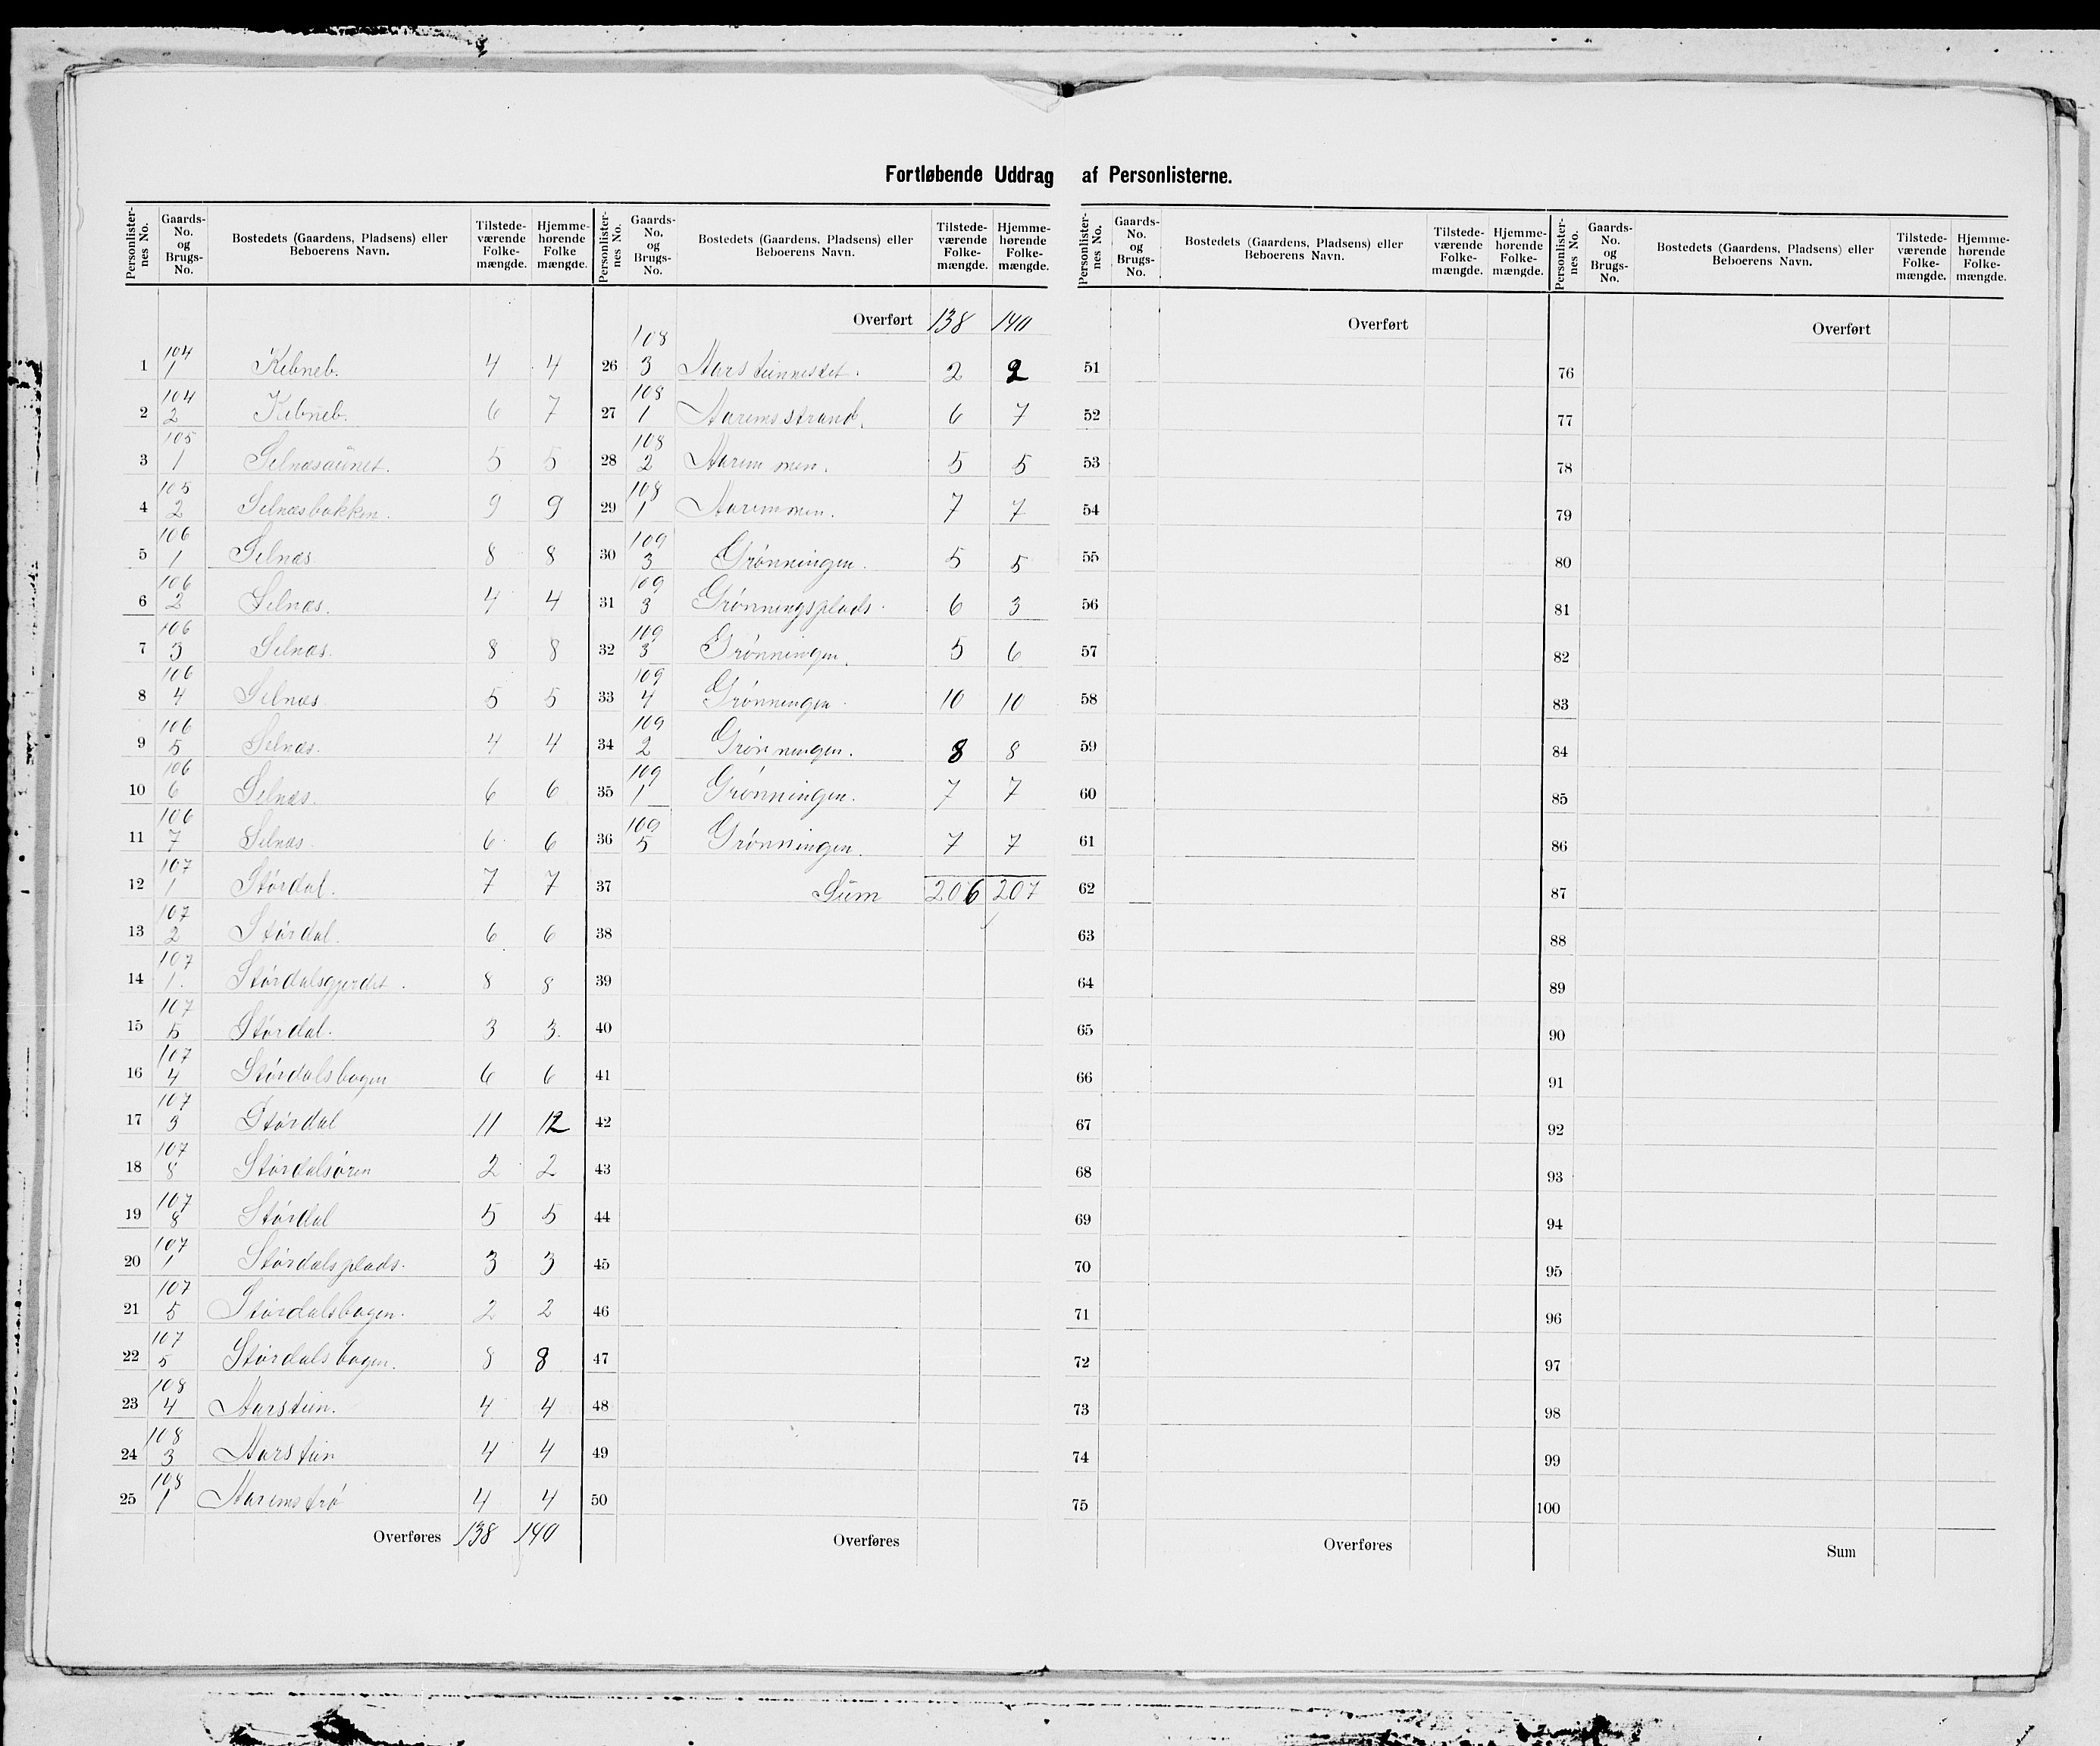 Fortløbende Uddrag af Personlisterne.
Personlisternes No. | Gaards-No. og Brugs-No. | Bostedets (Gaardens, Pladsens) eller Beboerens Navn. | Tilstedeværende Folkemængde. | Hjemmehørende Folkemængde.
1 | 104 1 | Kebneb. | 4 | 4
2 | 104 2 | Kebneb. | 6 | 7
3 | 105 1 | Selnæsaunet. | 5 | 5
4 | 105 2 | Selnæsbakken. | 9 | 9
5 | 106 1 | Selnæs | 8 | 8
6 | 106 2 | Selnæs. | 4 | 4
7 | 106 3 | Selnæs. | 8 | 8
8 | 106 4 | Selnæs | 5 | 5
9 | 106 5 | Selnæs. | 4 | 4
10 | 106 6 | Selnæs. | 6 | 6
11 | 106 7 | Selnæs. | 6 | 6
12 | 107 1 | Størdal. | 7 | 7
13 | 107 2 | Størdal. | 6 | 6
14 | 107 1. | Størdalsgjerdet. | 8 | 8
15 | 107 5 | Størdal. | 3 | 3.
16 | 107 4 | Størdalsbogen | 6 | 6
17 | 107 3 | Størdal | 11 | 12
18 | 107 8 | Størdalsøren | 2 | 2
19 | 107 8 | Størdal | 5 | 5
20 | 107 1 | Størdalsplads. | 3 | 3
21 | 107 5 | Størdalsbogen. | 2 | 2
22 | 107 5 | Størdalsbogen. | 8 | 8
23 | 108 4 | Aarstun. | 4 | 4
24 | 108 3 | Aarstun | 4 | 4
25 | 108 1 | Aaremstrø | 4 | 4
Overføres 138 140
Personlisternes No. | Gaards-No. og Brugs-No. | Bostedets (Gaardens, Pladsens) eller Beboerens Navn. | Tilstedeværende Folkemængde. | Hjemmehørende Folkemængde.
Overført 138 140
26 | 108 3 | | 2 | 2
27 | 108 1 | Aaremsstrand. | 6 | 7
28 | 108 2 | Aaremmen. | 5 | 5
29 | 108 1 | Aaremmen. | 7 | 7
30 | 109 3 | Grønningen. | 5 | 5
31 | 109 3 | Grønningsplads. | 6 | 3
32 | 109 3 | Grønningen. | 5 | 6
33 | 109 4 | Grønningen. | 10 | 10
34 | 109 2 | Grønningen. | 8 | 8
35 | 109 1 | Grønningen. | 7 | 7
36 | 109 5 | Grønningen. | 7 | 7
37 | Sum | 206 | 207
38
39
40
41
42
43
44
45
46
47
48
49
50
Overføres
Personlisternes No. | Gaards-No. og Brugs-No. | Bostedets (Gaardens, Pladsens) eller Beboerens Navn. | Tilstedeværende Folkemængde. | Hjemmehørende Folkemængde.
Overført
51
52
53
54
55
56
57
58
59
60
61
62
63
64
65
66
67
68
69
70
71
72
73
74
75
Overføres
Personlisternes No. | Gaards-No. og Brugs-No. | Bostedets (Gaardens, Pladsens) eller Beboerens Navn. | Tilstedeværende Folkemængde. | Hjemmehørende Folkemængde.
Overført
76
77
78
79
80
81
82
83
84
85
86
87
88
89
90
91
92
93
94
95
96
97
98
99
100
Sum